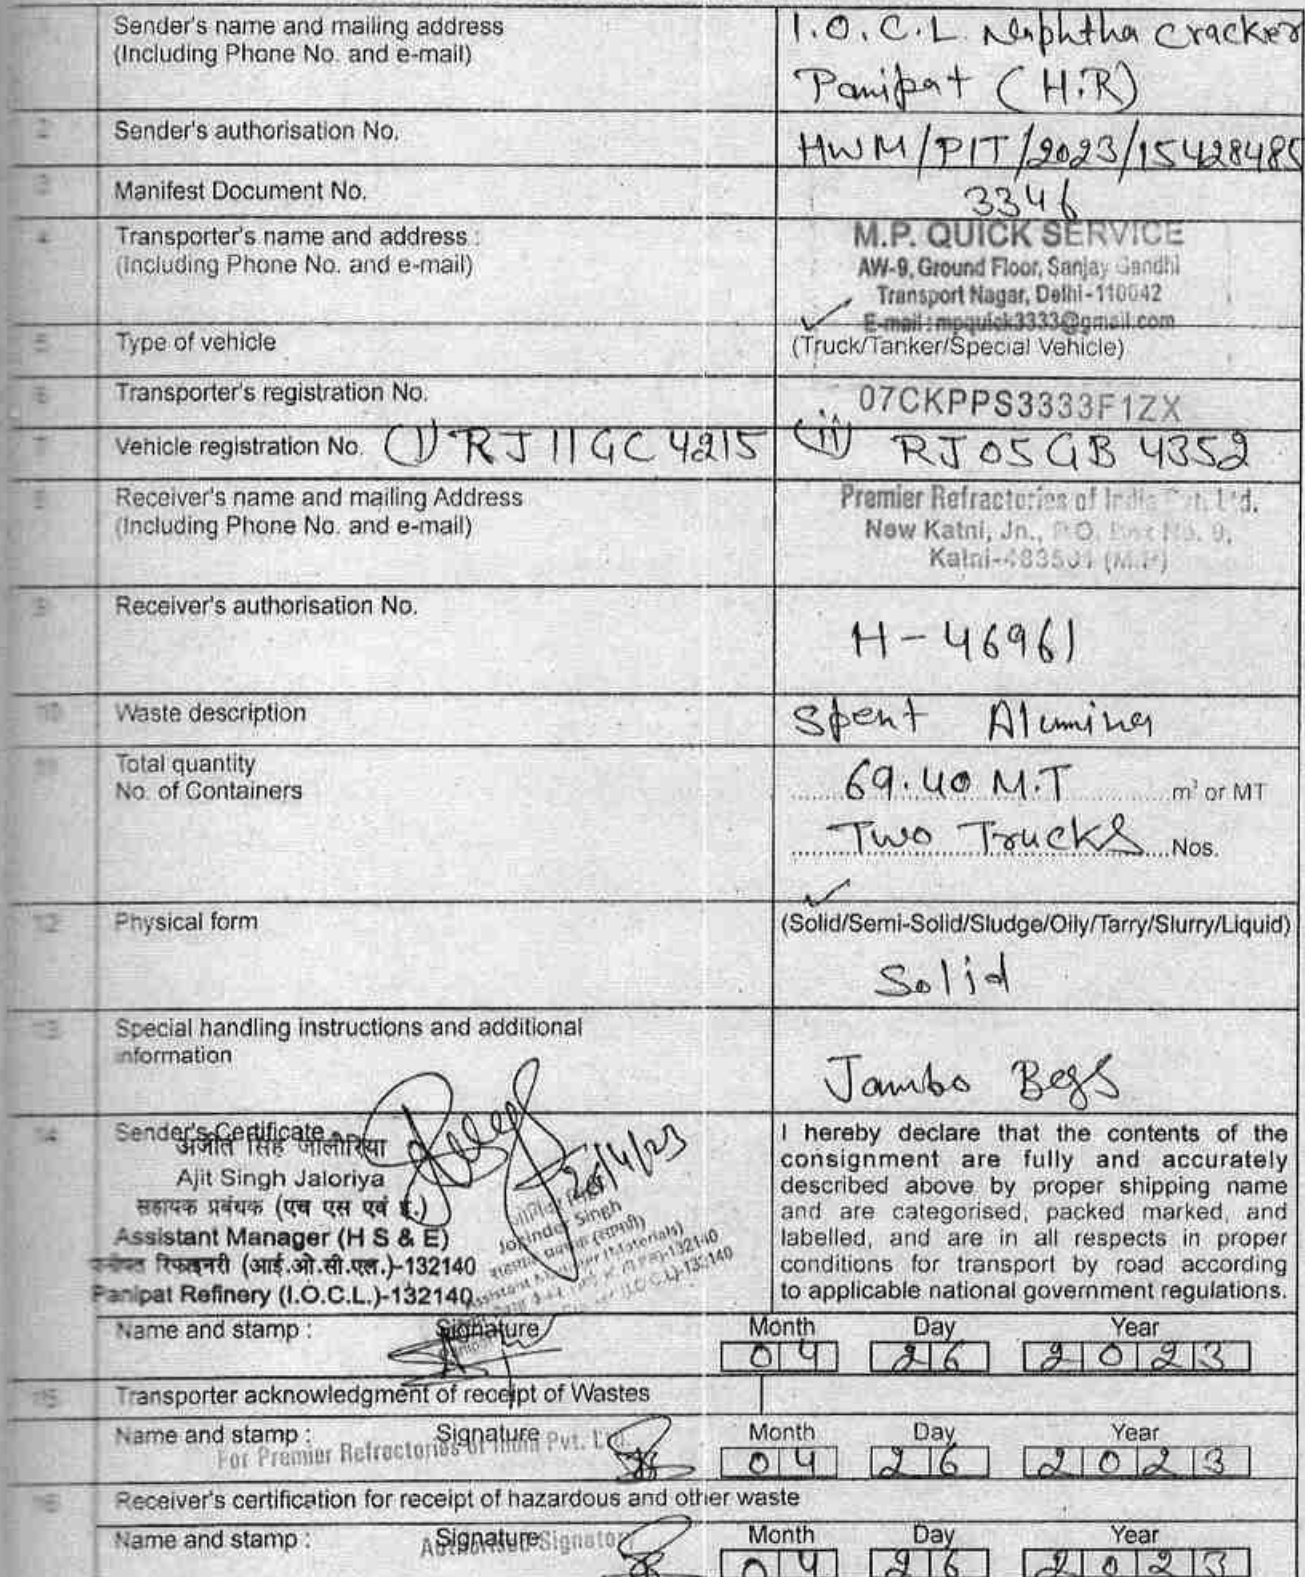 Sender's name and mailing address
(Including Phone No. and e-mail)
I.O.C.L. Naphtha Cracker
Panipat (H.R)
2 Sender's authorisation No.
HWM/PIT/2023/15428485
3 Manifest Document No.
3346
4 Transporter's name and address :
(Including Phone No. and e-mail)
M.P. QUICK SERVICE
AW-9, Ground Floor, Sanjay Gandhi
Transport Nagar, Delhi-110042
E-mail : mpquick3333@gmail.com
5 Type of vehicle
(Truck/Tanker/Special Vehicle)
6 Transporter's registration No.
07CKPPS3333F1ZX
7 Vehicle registration No. (I) RJ11GC4215 (II) RJ05GB4352
8 Receiver's name and mailing Address
(Including Phone No. and e-mail)
Premier Refractories of India Pvt. Ltd.
New Katni, Jn., P.O. Box No. 9,
Katni-483501 (M.P)
9 Receiver's authorisation No.
H-46961
10 Waste description
Spent Alumina
Total quantity
No. of Containers
69.40 M.T m³ or MT
Two Trucks Nos.
12 Physical form
(Solid/Semi-Solid/Sludge/Oily/Tarry/Slurry/Liquid)
Solid
13 Special handling instructions and additional
information
Jambo Begs
14 Sender's Certificate
अजीत सिंह जालोरिया
Ajit Singh Jaloriya
सहायक प्रबंधक (एच एस एवं ई.)
Assistant Manager (H S & E)
रिफाइनरी (आई.ओ.सी.एल.)-132140
Panipat Refinery (I.O.C.L.)-132140
26/4/23
Joginder Singh
Assistant Manager (Materials)
(I.O.C.L)-132140
I hereby declare that the contents of the
consignment are fully and accurately
described above by proper shipping name
and are categorised, packed marked, and
labelled, and are in all respects in proper
conditions for transport by road according
to applicable national government regulations.
Name and stamp : Signature Month Day Year
04 26 2023
15 Transporter acknowledgment of receipt of Wastes
Name and stamp : Signature Month Day Year
For Premier Refractories of India Pvt. Ltd.
04 26 2023
16 Receiver's certification for receipt of hazardous and other waste
Name and stamp : Signature Month Day Year
Authorised Signatory
04 26 2023